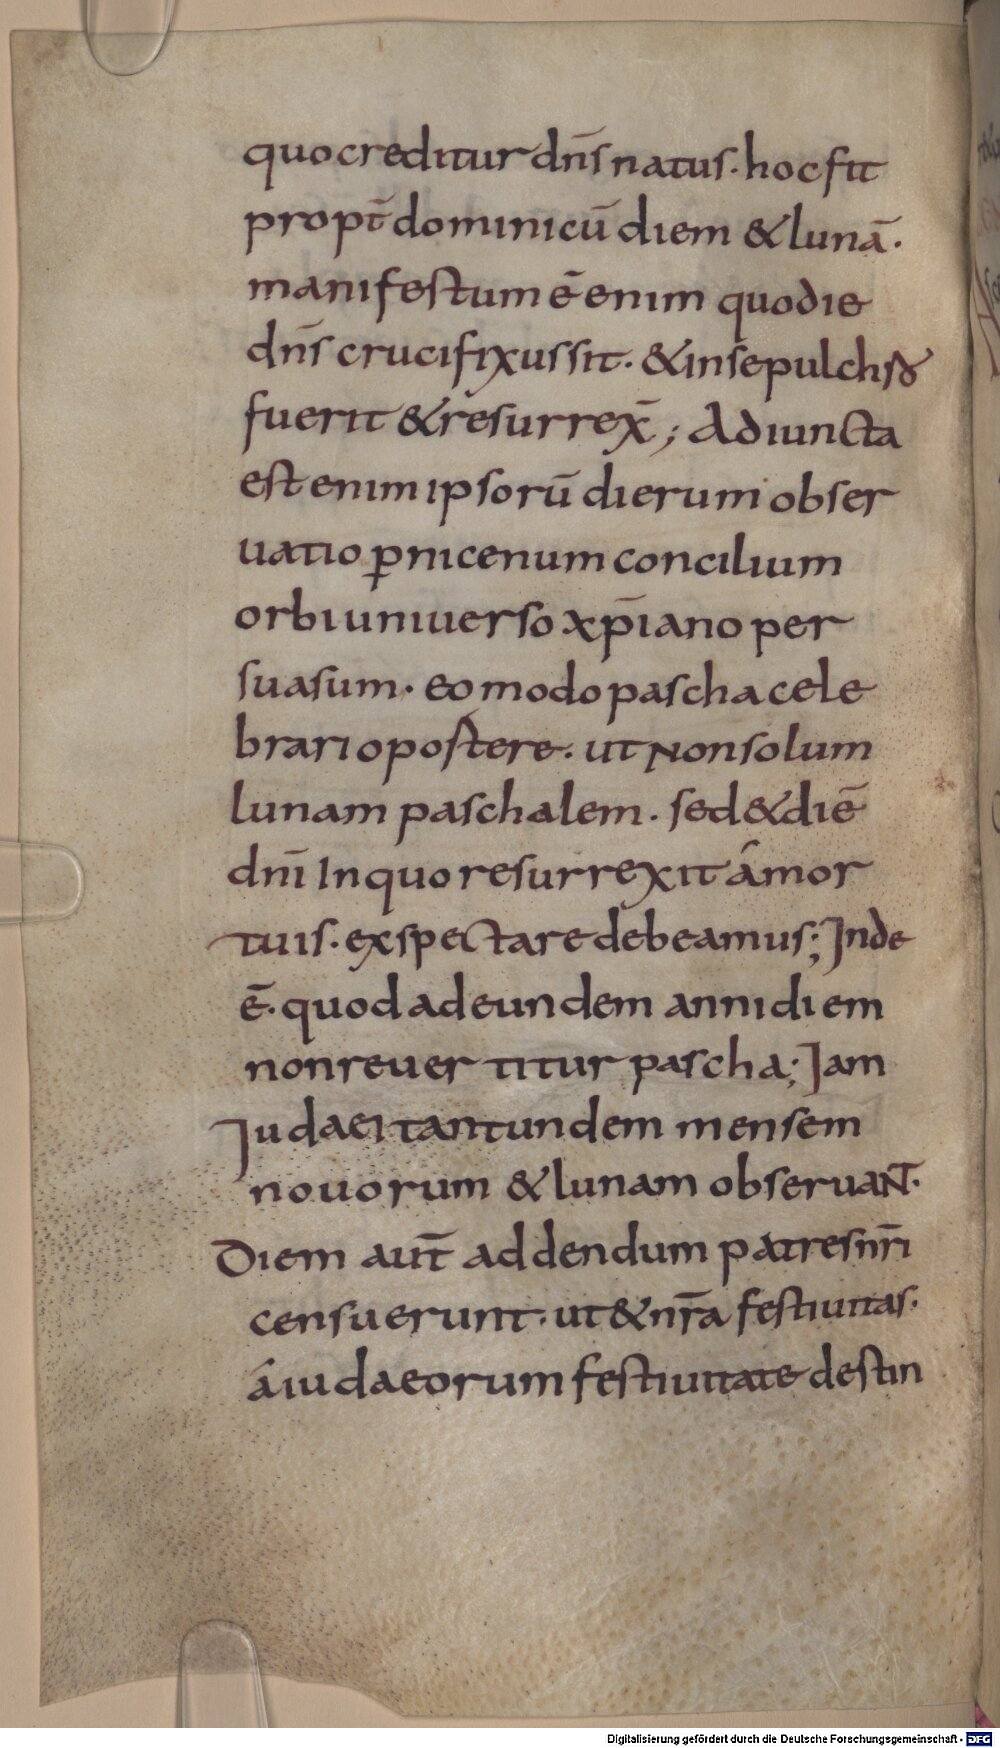 quo creditur dn̄s natus. hoc fit
propt̄ dominicū diem & lunā.
manifestum ē enim quo die
dn̄s crucifixus sit. & in sepulchro
fuerit & resurrex̄; Adiuncta
est enim ipsorū dierum obser
uatio p̲ nicenum concilium
orbi uniuerso xp̄iano per
suasum. eo modo pascha cele
brari opostere. ut Non solum
lunam paschalem. sed & diē
dn̄i In quo resurrexit á mor
tuis. exspectare debeamus; Inde
ē. quod ad eundem anni diem
non reuertitur pascha; Iam
Iudaei tantundem mensem
nouorum & lunam obseruaNT.
Diem aut̄ addendum patres nr̄i
censuerunt. ut & nr̄a festiuitas.
á iudaeorum festiuitate destin
Digitalisierung gefördert durch die Deutsche Forschungsgemeinschaft - DFG